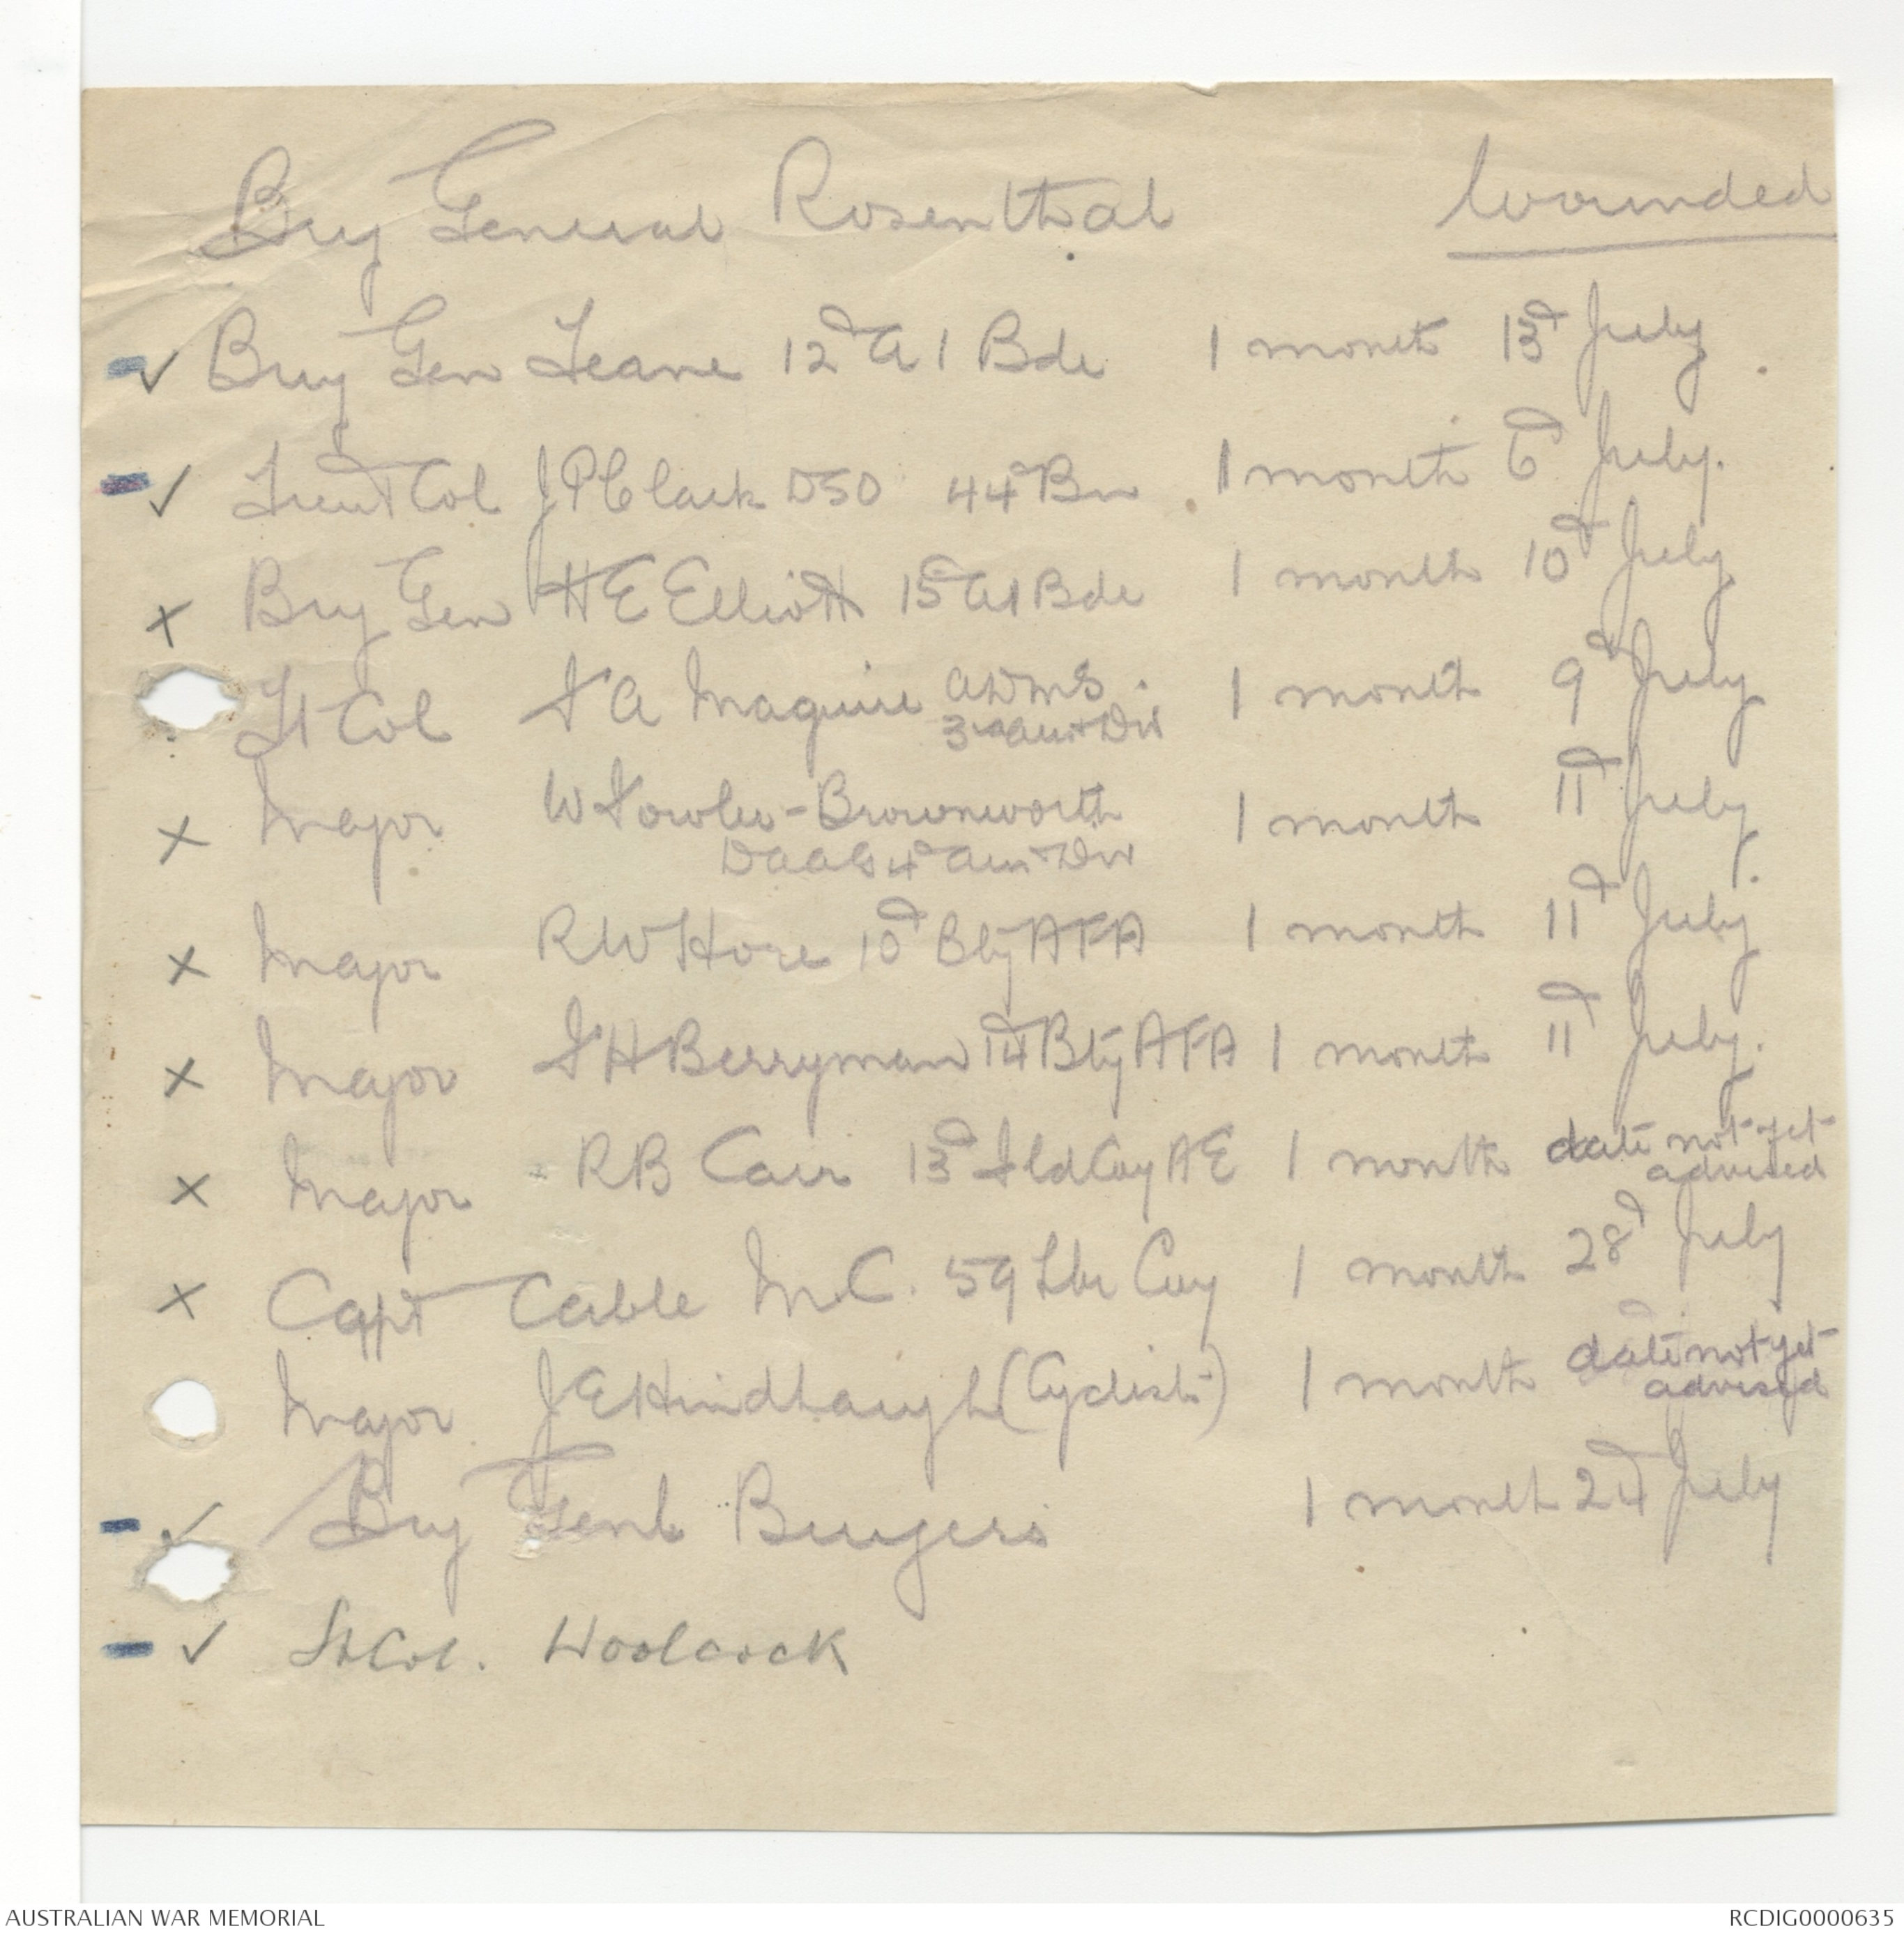 Brig General Rosenthal Wounded
✓ Brig Gen Leane 12th A I Bde 1 month 13th July.
✓ Lieut Col J P Clark DSO 44th Bn 1 month 6th July.
x Brig Gen H E Elliott 15th A I Bde 1 month 10th July
Lt Col F A Maguire ADMS 1 month 9th July
3rd Aust Div
x Major W Fowler-Brownworth 1 month 11th July
DAAG 4th Aust Div
x Major R W Hore 10th Bty AFA 1 month 11th July
x Major F H Berryman 14th Bty AFA 1 month 11th July.
x Major R B Carr 13th Fld Coy AE 1 month date not yet
advised
x Capt Cable M.C. 59 Lbr Coy 1 month 28th July
Major J E Hindhaugh (Cyclist) 1 month date not yet
advised
✓ Brig Genl Burgess 1 month 24 July
✓ Lt Col. Woolcock
AUSTRALIAN WAR MEMORIAL RCDIG0000635